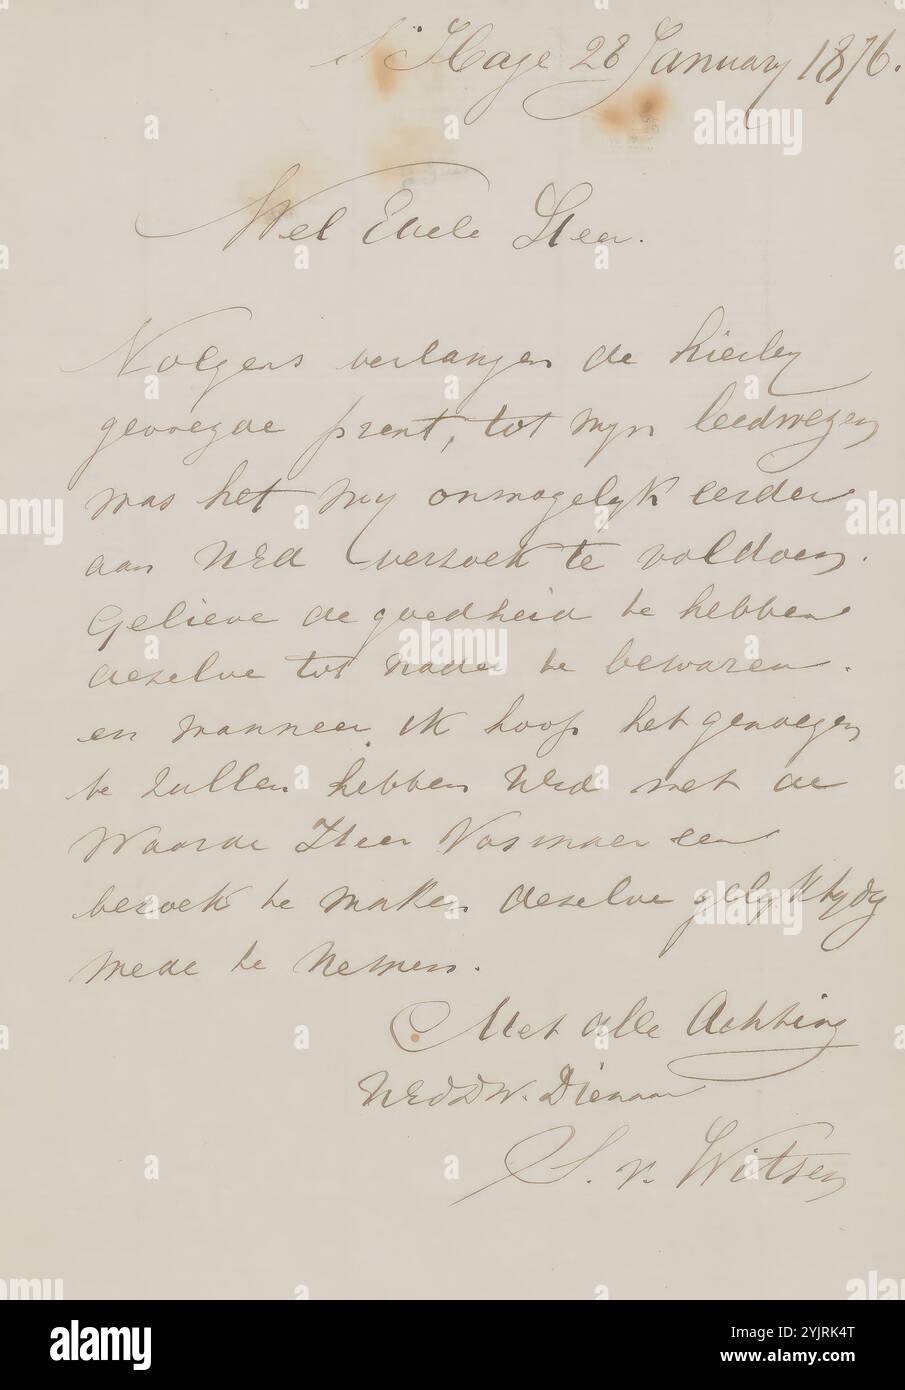 s'Hage 28 January 1876.
Wel Edele Heer.
Volgens verlangen de hierby
gevoegde prent, tot myn leedwezen
was het my onmogelyk eerder
aan UEd verzoek te voldoen.
Gelieve de goedheid te hebben
dezelve tot nader te bewaren.
en wanneer ik hoop het genoegen
te zullen hebben UEd met de
Waarde Heer Vosmaer een
bezoek te maken dezelve gelyktydig
mede te nemen.
Met alle Achting
UEdDW. Dienaar
S. v. Witsen
alamy
Image ID: 2YJRK4T
www.alamy.com